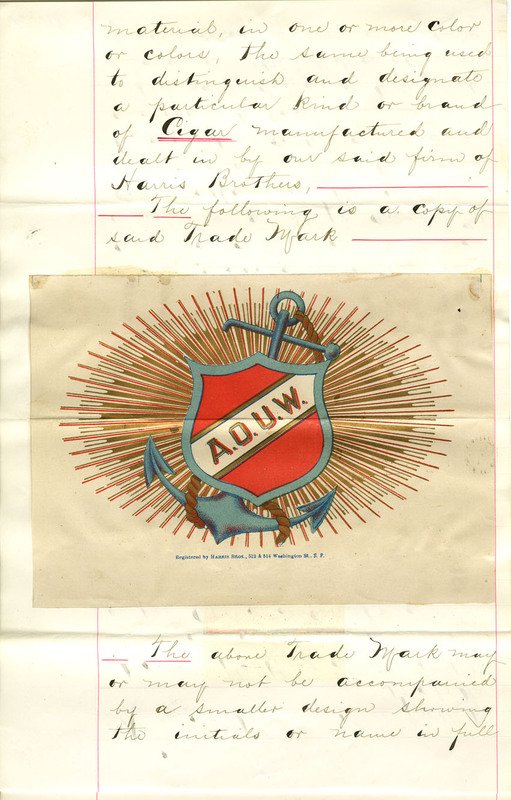 material, in one or more color
or colors, the same being used
to distinguish and designate
a particular kind or brand
of Cigar manufactured and
dealt in by our said firm of
Harris Brothers,
The following is a copy of
said Trade Mark
A.O.U.W.
Registered by HARRIS BROS., 312 & 314 Washington St., S. F.
The above Trade Mark may
or may not be accompanied
by a smaller design showing
the initials or name in full